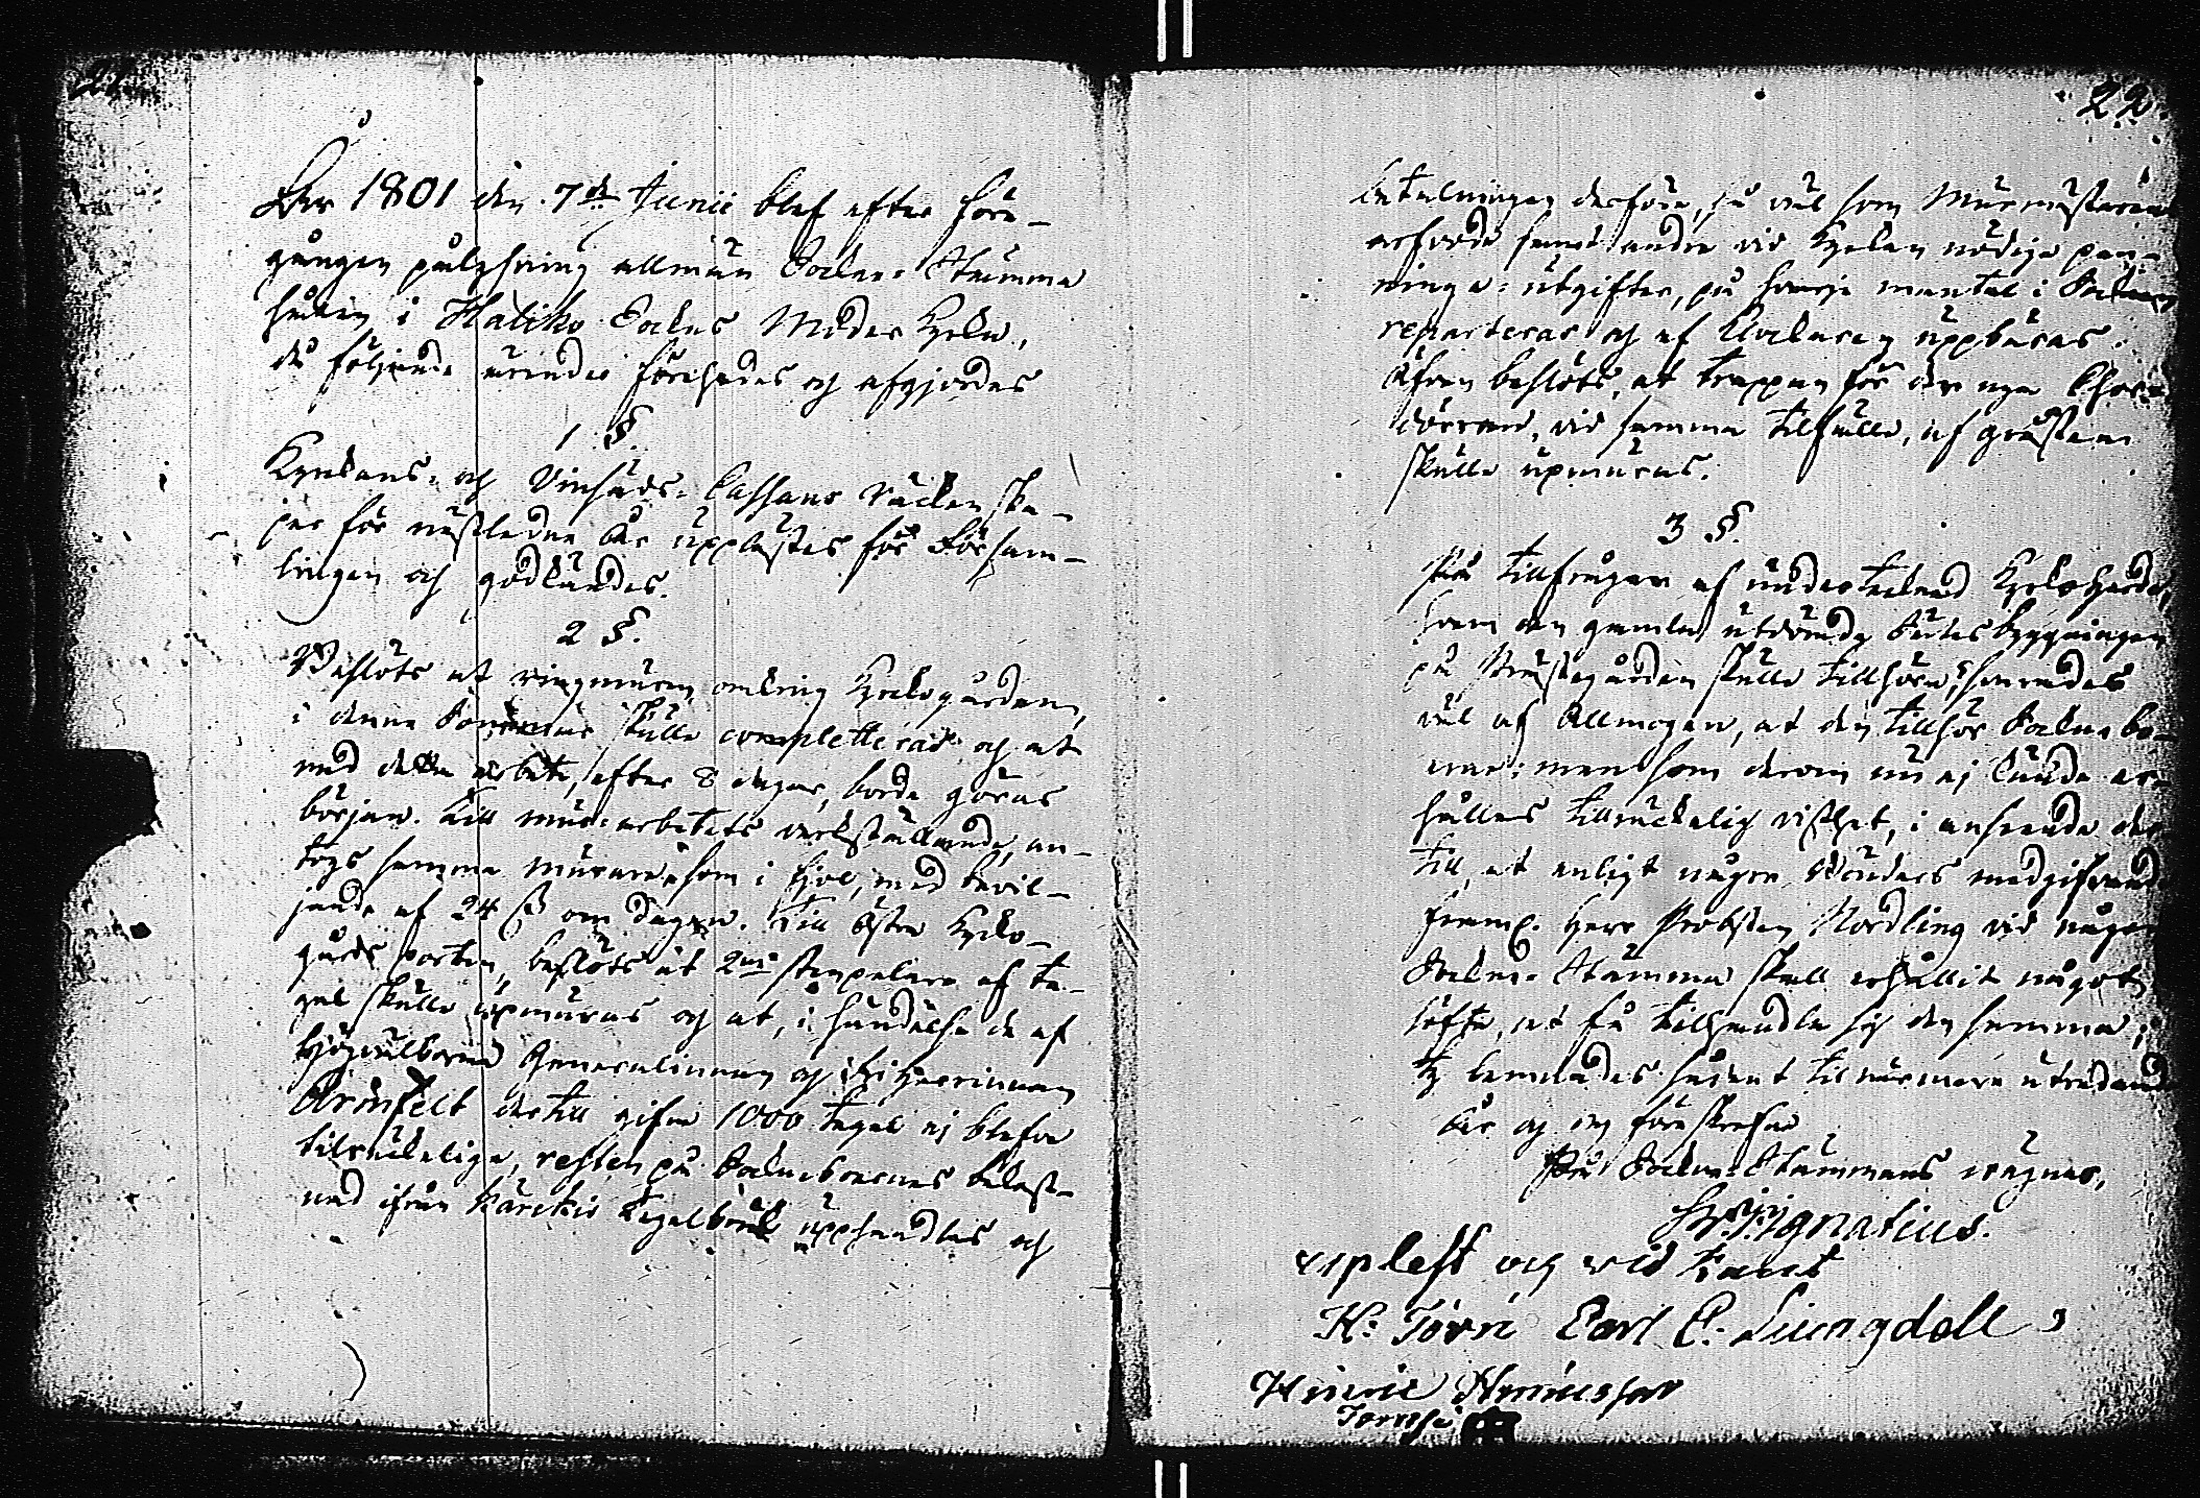 22.
År 1801 den 7de Junii blef efter före-
gången pålysning allmän Sockne Stämma
hållen i Haliko Sockns Moder Kyrka,
då följande ärender förehades och afgjordes
1 §.
Kyrkans- och Vinsäds- Cassans räckenska-
per för nästledne år uplästes för Försam-
lingen och godkändes.
2 §.
Beslöts at ringmuren omkring Kyrkogården,
i denne Sommar skulle completteras och at
med detta arbete, efter 8 dagar, borde göras
början. Till mur-arbetets verkställande, an-
togs samma murare som i fjol, med bevil-
jande af 24 ß om dagen. Till östra Kyrko-
gårds porten, beslöts at 2ne stenpelare af te-
gel skulle upmuras och at, i händelse de af
Högvälborna Generalinnan och Friherrinnan
Armfelt dertill gifne 1000 tegel ej blefve
tilräckelige, resten på Socknboernes bekost-
nad ifrån Kärckis tegelbruk upphandlas och
betalningen derföre, så väl som Murmästarens
arfvode samt andre vid Kyrkan nödige pen-
ninge-utgifter, på hvarje mantal i Socknen
reparteras och af Klockaren uppbäras.
Äfven beslöts, at trappan för den nya Chors
dörren, vid samma tilfälle, af gråsten
skulle upmuras.
3 §.
På tillfrågan af undertecknad Kyrkoherde,
hvem den gamla utdömda byggningen
på Prästegården skulle tillhöra, svarades
väl af Allmogen, at den tillhör Sockne bo-
erne; men som derom nu ej kunde er-
hållas tillräckelig visshet, i anseende der
till, at enligt någre Bönders medgifvande
framl. Herr Probsten Nordling vid någon
Sockne-Stämma skall erhållit något
löfte, at få tillhandla sig den samma;
ty lemnades sådant til närmare utredande
År och dag föreskrefne
På Sockne Stämmans vägnar,
Ignatius.
uplest och vid känt
K: Törn Carl C. Liungdell
Hinric Hinricsson